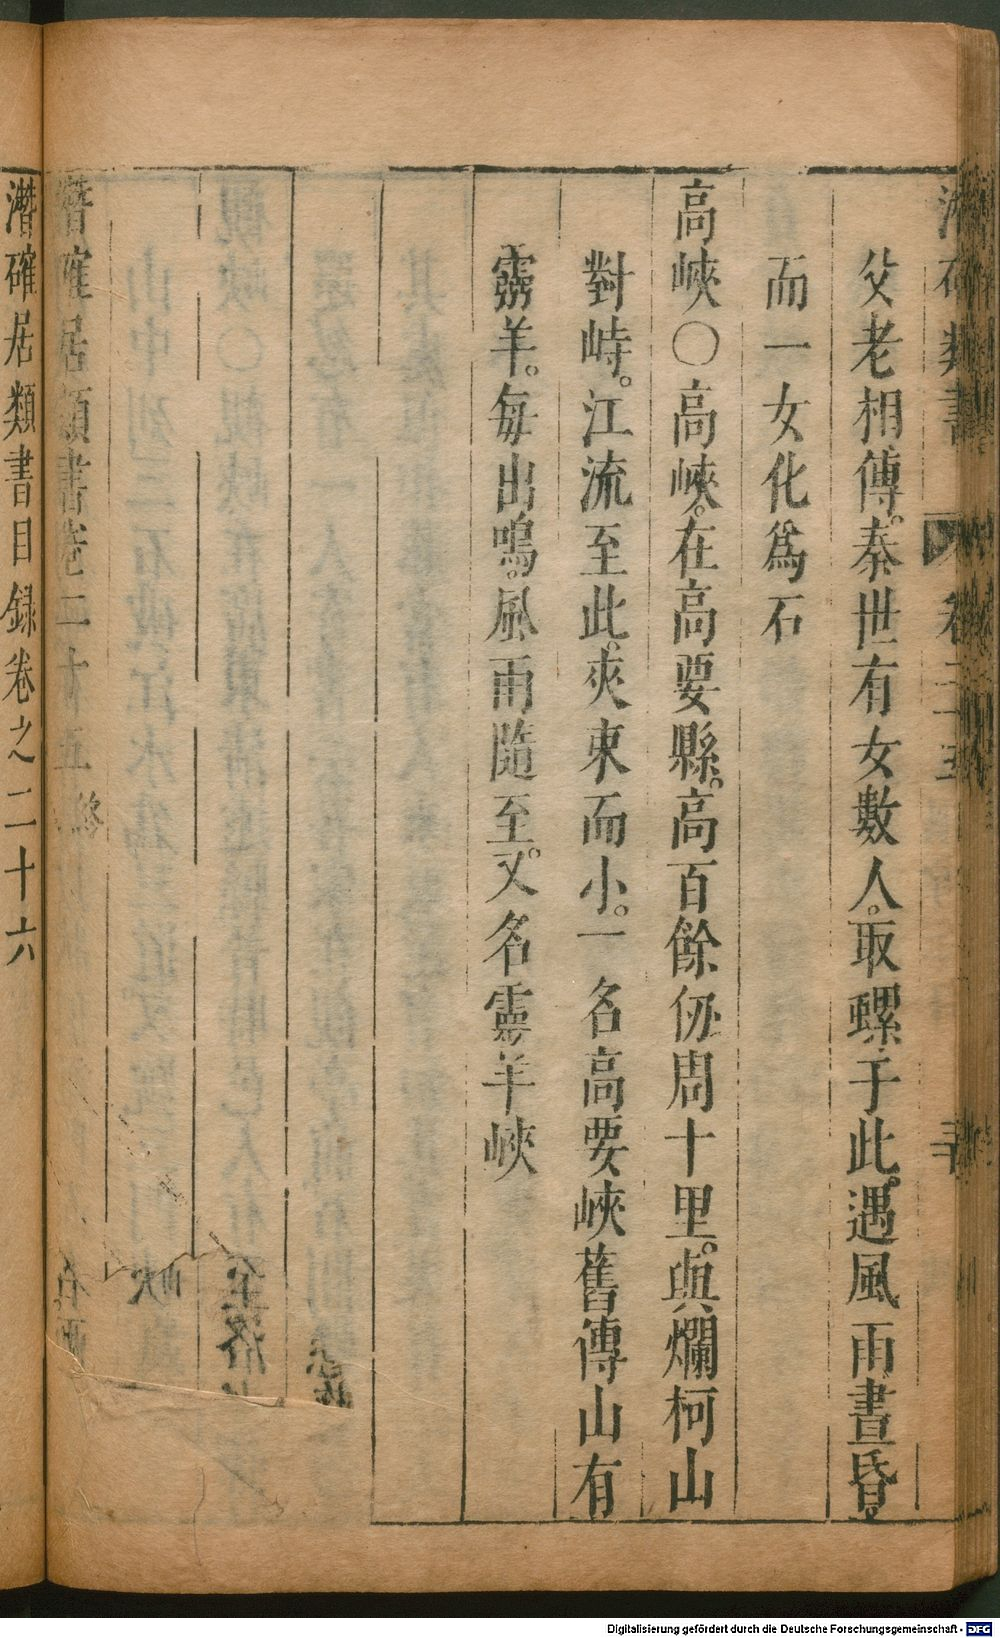 父老相傳。秦世有女數人。取螺于此。遇風雨晝昏。
而一女化爲石
高峽○高峽。在高要縣。高百餘仞周十里。與爛柯山
對峙。江流至此。夾束而小。一名高要峽舊傳山有
靈羊。每出鳴。風雨隨至。又名靈羊峽
潛確居類書卷二十五終
潛確居類書目錄卷之二十六
Digitalisierung gefördert durch die Deutsche Forschungsgemeinschaft - DFG